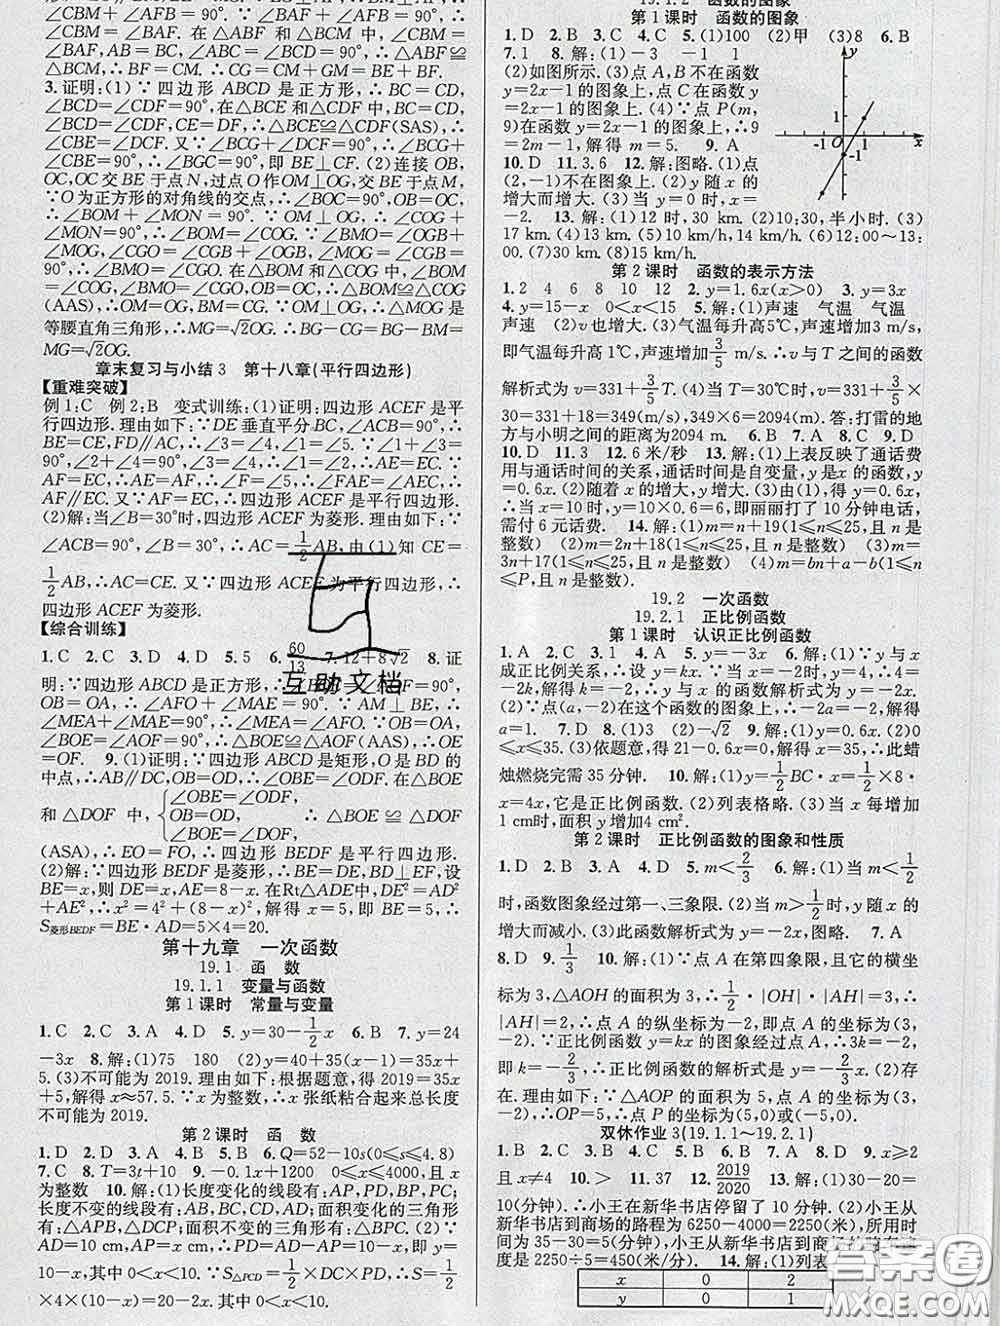 ∠BAF+∠AFB=90°.在△ABF和△BCM中,∠CBM=
∠BAF,AB=BC,∠ABF=∠BCM=90°,∴△ABF≌
△BCM,∴BF=CM,∴CG=CM,∴CG+GM=BE+BF.
3.证明:(1)∵四边形ABCD是正方形,∴BC=CD,
∠BCF=∠CDF=90°,在△BCE和△CDF中,BC=CD,
∠BCF=∠CDF,CE=DF,∴△BCE≌△CDF(SAS),∴∠BCE
=∠DCF.又∵∠BCG+∠DCF=90°,∴∠BCG+∠CBE
=90°,∴∠BGC=90°,即BE⊥CF.(2)连接OB,
OC,OC交BE于点N,过点O作OM⊥OG,交BE于点M,
∵O为正方形的对角线的交点,∴∠BOC=90°,OB=OC,∴
∠BOM+∠MON=90°.∵OM⊥OG,∴∠COG+
∠MON=90°,∴∠BOM=∠COG.∵∠OGC=∠OGB+
∠MGO,∠CGO=∠CGB+∠OGB,∠OGB+∠MGO=
90°,∴∠BMO=∠CGO.在△BOM和△COG中,∠BOM
=∠COG,∠BMO=∠CGO,OB=OC,∴△BOM≌△COG
(AAS),∴OM=OG,BM=CG.又∵OM⊥OG,∴△MOG是
等腰直角三角形,∴MG=√2OG.∴BG-CG=BG-BM=
MG=√2OG.
章末复习与小结3 第十八章(平行四边形)
【重难突破】
例1:C 例2:B 变式训练:(1)证明:四边形ACEF是平
行四边形.理由如下:∵DE垂直平分BC,∠ACB=90°,∴
BE=CE,FD∥AC,∴∠3=∠4,∴∠1=∠5.∵∠1+∠3=
90°,∠2+∠4=90°,∴∠1=∠2,∴AE=EC.又∵AF=
EC,∴AE=AF,∴∠F=∠5,∴∠FAE=∠AEC,∴AF∥
EC.又∵AF=EC,∴四边形ACEF是平行四边形.
(2)解:当∠B=30°时,四边形ACEF为菱形.理由如下:∵
∠ACB=90°,∠B=30°,∴AC=1/2AB,由(1)知CE=
1/2AB,∴AC=CE.又∵四边形ACEF为平行四边形,∴
四边形ACEF为菱形.
【综合训练】
1.C 2.C 3.D 4.D 5.5 6.60/13 7.12+8√2 8.证
明:∵四边形ABCD是正方形,∴∠BOE=∠AOF=90°,
OB=OA,∴∠AFO+∠MAE=90°.∵AM⊥BE,∴
∠MEA+∠MAE=90°,∴∠MEA=∠AFO.∵OB=OA,
∠BOE=∠AOF=90°,∴△BOE≌△AOF(AAS),∴OE
=OF. 9.(1)证明:∵四边形ABCD是矩形,O是BD的
中点,∴AB∥DC,OB=OD,∴∠OBE=∠ODF.在△BOE
和△DOF中,{∠OBE=∠ODF, OB=OD, ∠BOE=∠DOF, ∴△BOE≌△DOF
(ASA),∴EO=FO,∴四边形BEDF是平行四边形.
(2)解:∵四边形BEDF为菱形,∴BE=DE,BD⊥EF,设
BE=x,则DE=x,AE=8-x.在Rt△ADE中,DE²=AD²
+AE²,∴x²=4²+(8-x)²,解得x=5,即BE=5,∴
S菱形BEDF=BE·AD=5×4=20.
第十九章 一次函数
19.1 函 数
19.1.1 变量与函数
第1课时 常量与变量
1.C 2.C 3.A 4.D 5.y=30-1/2x 6.B 7.y=24
-3x 8.解:(1)75 180 (2)y=40+35(x-1)=35x+
5.(3)不可能为2019.理由如下:根据题意,得2019=35x
+5,解得x≈57.5.∵x为整数,∴x张纸粘合起来总长度
不可能为2019.
第2课时 函 数
1.D 2.D 3.A 4.B 5.B 6.Q=52-10s(0≤s≤4.8)
7.C 8.T=3t+10 9.-0.1x+1200 0≤x≤4000,且x
为整数 10.解:(1)长度变化的线段有:AP,PD,BP,PC;
长度不变的线段有:AB,BC,CD,AD;面积变化的三角形
有:△APB,△DCP;面积不变的三角形有:△BPC.(2)∵
AD=10 cm,AP=x cm,∴PD=AD-AP=10-x,即y=
10-x,其中0<x<10.∵S△PCD=1/2×DC×PD,∴S=1/2
×4×(10-x)=20-2x.其中0<x<10.
19.1.2 函数的图象
第1课时 函数的图象
1.D 2.B 3.C 4.C 5.(1)100 (2)甲 (3)8 6.B
7.1 8.解:(1)-3 -1 1
(2)如图所示.(3)点A,B不在函数
y=2x-1的图象上,点C在函数y
=2x-1的图象上.(4)∵点P(m,
9)在函数y=2x-1的图象上,∴9
=2m-1,解得m=5. 9.A
10.D 11.3.6 12.解:图略.(1)点
(2,-1)不在图象上.(2)y随x的
增大而增大.(3)当y=0时,x=
-2. 13.解:(1)12时,30 km.(2)10:30,半小时.(3)
17 km.(4)13 km.(5)10 km/h,14 km/h.(6)12:00~13
:00.(7)30 km.(8)15 km/h.
y
1
-1 O 1 x
-1
第2课时 函数的表示方法
1.2 4 6 8 10 12 2.y=1.6x(x>0) 3.y=3x
4.y=15-x 0<x<15 5.解:(1)声速 气温 气温
声速 (2)v也增大.(3)气温每升高5℃,声速增加3 m/s,
即气温每升高1℃,声速增加3/5 m/s.∴v与T之间的函数
解析式为v=331+3/5T.(4)当T=30时,v=331+3/5T
×30=331+18=349(m/s),349×6=2094(m).答:打雷的地
方与小明之间的距离为2094 m. 6.B 7.A 8.C 9.D
10.D 11.3 12.6米/秒 13.解:(1)上表反映了通话费
用与通话时间的关系,通话时间是自变量,y是x的函数,
y=0.6x.(2)随着x的增大,y增大.(3)由(1),得y=0.6x,
∴当x=10时,y=10×0.6=6,即丽丽打了10分钟电话,
需付6元话费. 14.解:(1)m=n+19(1≤n≤25,且n是
整数) (2)m=2n+18(1≤n≤25,且n是整数) (3)m=
3n+17(1≤n≤25,且n是整数) (4)m=bn+a-b(1≤n
≤P,且n是整数)
19.2 一次函数
19.2.1 正比例函数
第1课时 认识正比例函数
1.A 2.C 3.1 4.A 5.y=-3x 6.B 7.解:(1)∵y与x
成正比例关系,∴设y=kx.∵当x=-2时,y=4,∴4=
-2k.∴k=-2,∴y与x的函数解析式为y=-2x.
(2)∵点(a,-2)在这个函数的图象上,∴-2a=-2,解得
a=1. 7.D 8.(1)3 (2)-√2 9.解:(1)y=0.6x.(2)0
≤x≤35.(3)依题意,得21-0.6x=0,解得x=35,∴此蜡
烛燃烧完需35分钟. 10.解:(1)y=1/2BC·x=1/2×8·
x=4x,它是正比例函数.(2)列表格略.(3)当x每增加
1 cm时,面积y增加4 cm².
第2课时 正比例函数的图象和性质
1.D 2.B 3.A 4.D 5.m<2/3 6.解:(1)当m<1/2
时,函数图象经过第一、三象限.(2)当m>1/2时,y随x的
增大而减小.(3)此函数解析式为y=-2x,图略. 7.A
8.D 9.1/3 10.解:(1)∵点A在第四象限,且它的横坐
标为3,△AOH的面积为3,∴1/2·|OH|·|AH|=3,∴
|AH|=2,∴点A的纵坐标为-2,即点A的坐标为(3,
-2).∵正比例函数y=kx的图象过点A,∴3k=-2,即
k=-2/3,∴正比例函数的解析式为y=-2/3x.(2)存
在.理由如下:∵△AOP的面积为5,点A的坐标为(3,
-2),∴OP=5,∴点P的坐标为(5,0)或(-5,0).
双休作业3(19.1.1~19.2.1)
1.B 2.C 3.C 4.A 5.D 6.A 7.C 8.B 9.x≥2
且x≠4 10.> 11.37 12.2019/2020 13.解:(1)30-20=
10(分钟).∴小王在新华书店停留了10分钟.(2)小王从
新华书店到商场的路程为6250-4000=2250(米),所用时间
为35-30=5(分钟),小王从新华书店到商场的骑车速
度是2250÷5=450(米/分). 14.解:(1)列表
x 0 2
y 0 1
互助文档
答案圈
MXQE.COM